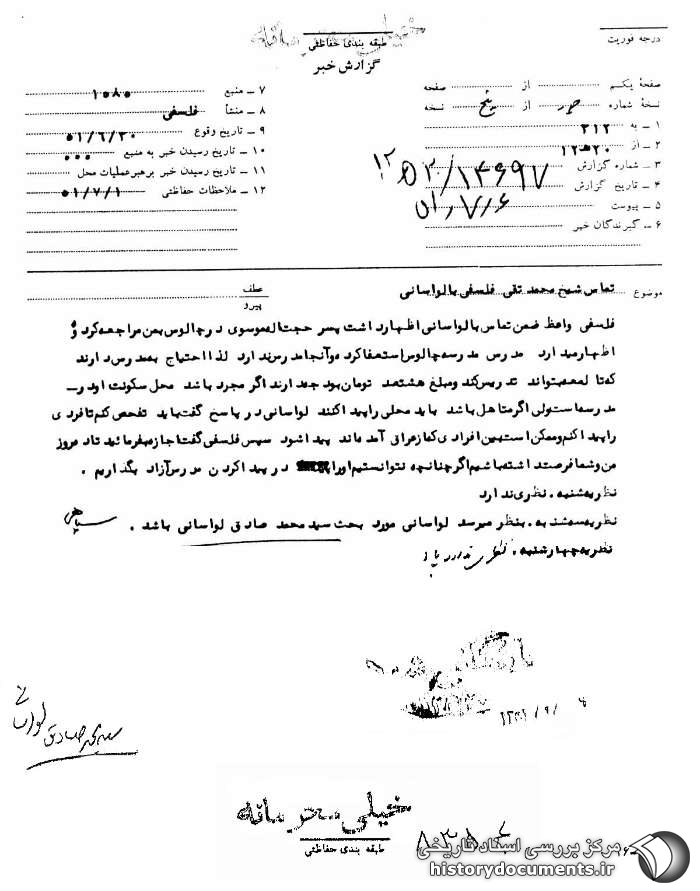 خیلی محرمانه
طبقه بندی حفاظتی
گزارش خبر
درجه فوریت
صفحهٔ یکم از صفحه
نسخهٔ شماره از پنج نسخه
۱ ـ به ۳۱۲
۲ ـ از ۲۰ ﻫ ۱۲
۳ ـ شماره گزارش
۴ ـ تاریخ گزارش
۵ ـ پیوست
۶ ـ گیرندگان خبر
۷ ـ منبع ۱۰۸۰
۸ ـ منشأ فلسفی
۹ ـ تاریخ وقوع ۵۱/۶/۳۰
۱۰ ـ تاریخ رسیدن خبر به منبع ۰۰۰
۱۱ ـ تاریخ رسیدن خبر برهبر عملیات محل
۱۲ ـ ملاحظات حفاظتی ۵۱/۷/۱
موضوع تماس شیخ محمد تقی فلسفی با لواسانی
عطف
پیرو
فلسفی واعظ ضمن تماس با لواسانی اظهار داشت پسر حجت اله موسوی در چالوس بمن مراجعه کرد و
اظهار میدارد مدرس مدرسه چالوس استعفا کرده و آنجا مدرس ندارد لذا احتیاج به مدرس دارند
که تا لمعه بتواند تدریس کند و مبلغ هشتصد تومان بودجه دارند اگر مجرد باشد محل سکونت او در ـ
مدرسه است ولی اگر متاهل باشد باید محلی را پیدا کنند لواسانی در پاسخ گفت باید تفحص کنم تا فردی
را پیدا کنم و ممکن است بین افرادی که از عراق آمده اند پیدا شود سپس فلسفی گفت اجازه بفرمائید تا ده روز
من و شما فرصت داشته باشیم اگر چنانچه نتوانستیم او را در پیدا کردن مدرس آزاد بگذاریم .
نظریه شنبه . نظری ندارد
نظریه سه شنبه . بنظر میرسد لواسانی مورد بحث سید محمد صادق لواسانی باشد .
نظریه چهارشنبه . نظری ندارد
سید محمد صادق لواسانی
خیلی محرمانه
طبقه بندی حفاظتی
مرکز بررسی اسناد تاریخی
historydocuments.ir